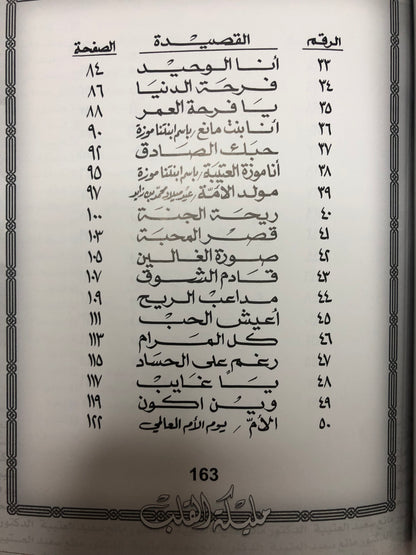 الرقم القصيدة الصفحة
٣٣ أنا الوحيد ٨٤
٣٤ فرحة الدنيا ٨٦
٣٥ يا فرحة العمر ٨٨
٣٦ أنا بنت مانع / باسم ابنتنا موزة ٩٠
٣٧ حبك الصادق ٩٢
٣٨ أنا موزة العتيبة / باسم ابنتنا موزة ٩٥
٣٩ مولد الأمّة / عيد ميلاد محمد بن زايد ٩٧
٤٠ ريحة الجنة ١٠٠
٤١ قصر المحبة ١٠٣
٤٢ صورة الغالين ١٠٥
٤٣ قادم الشوق ١٠٧
٤٤ مداعب الريح ١٠٩
٤٥ أعيش الحب ١١١
٤٦ كل المرام ١١٣
٤٧ رغم على الحساد ١١٥
٤٨ يا غايب ١١٧
٤٩ وين اكون ١١٩
٥٠ الأم / يوم الأم العالمي ١٢٢
163
مليكة القلب